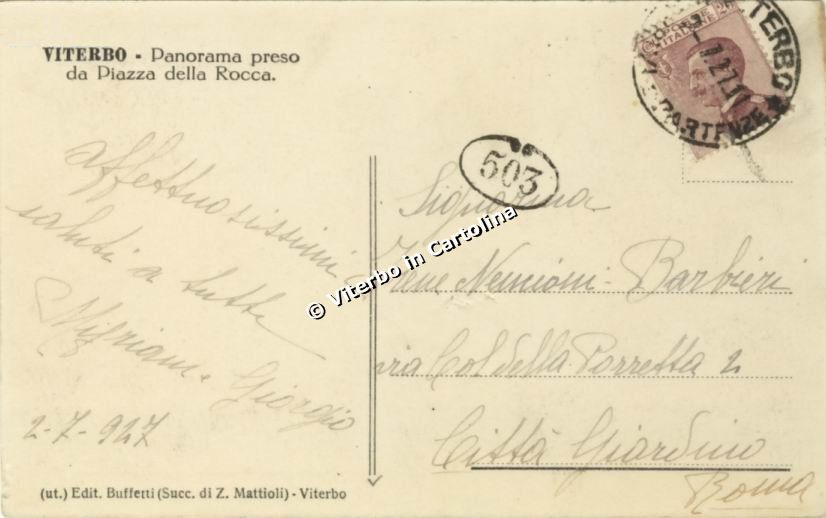 VITERBO - Panorama preso
da Piazza della Rocca.
affettuosissimi
saluti a tutte
Giorgio
2-7-927
(ut.) Edit. Buffetti (Succ. di Z. Mattioli) - Viterbo
503
© Viterbo in Cartolina
POSTE
ITALIANE
PARTENZE
Signorina
Nencioni - Barbieri
via Col della Porretta 2
Città Giardino
Roma